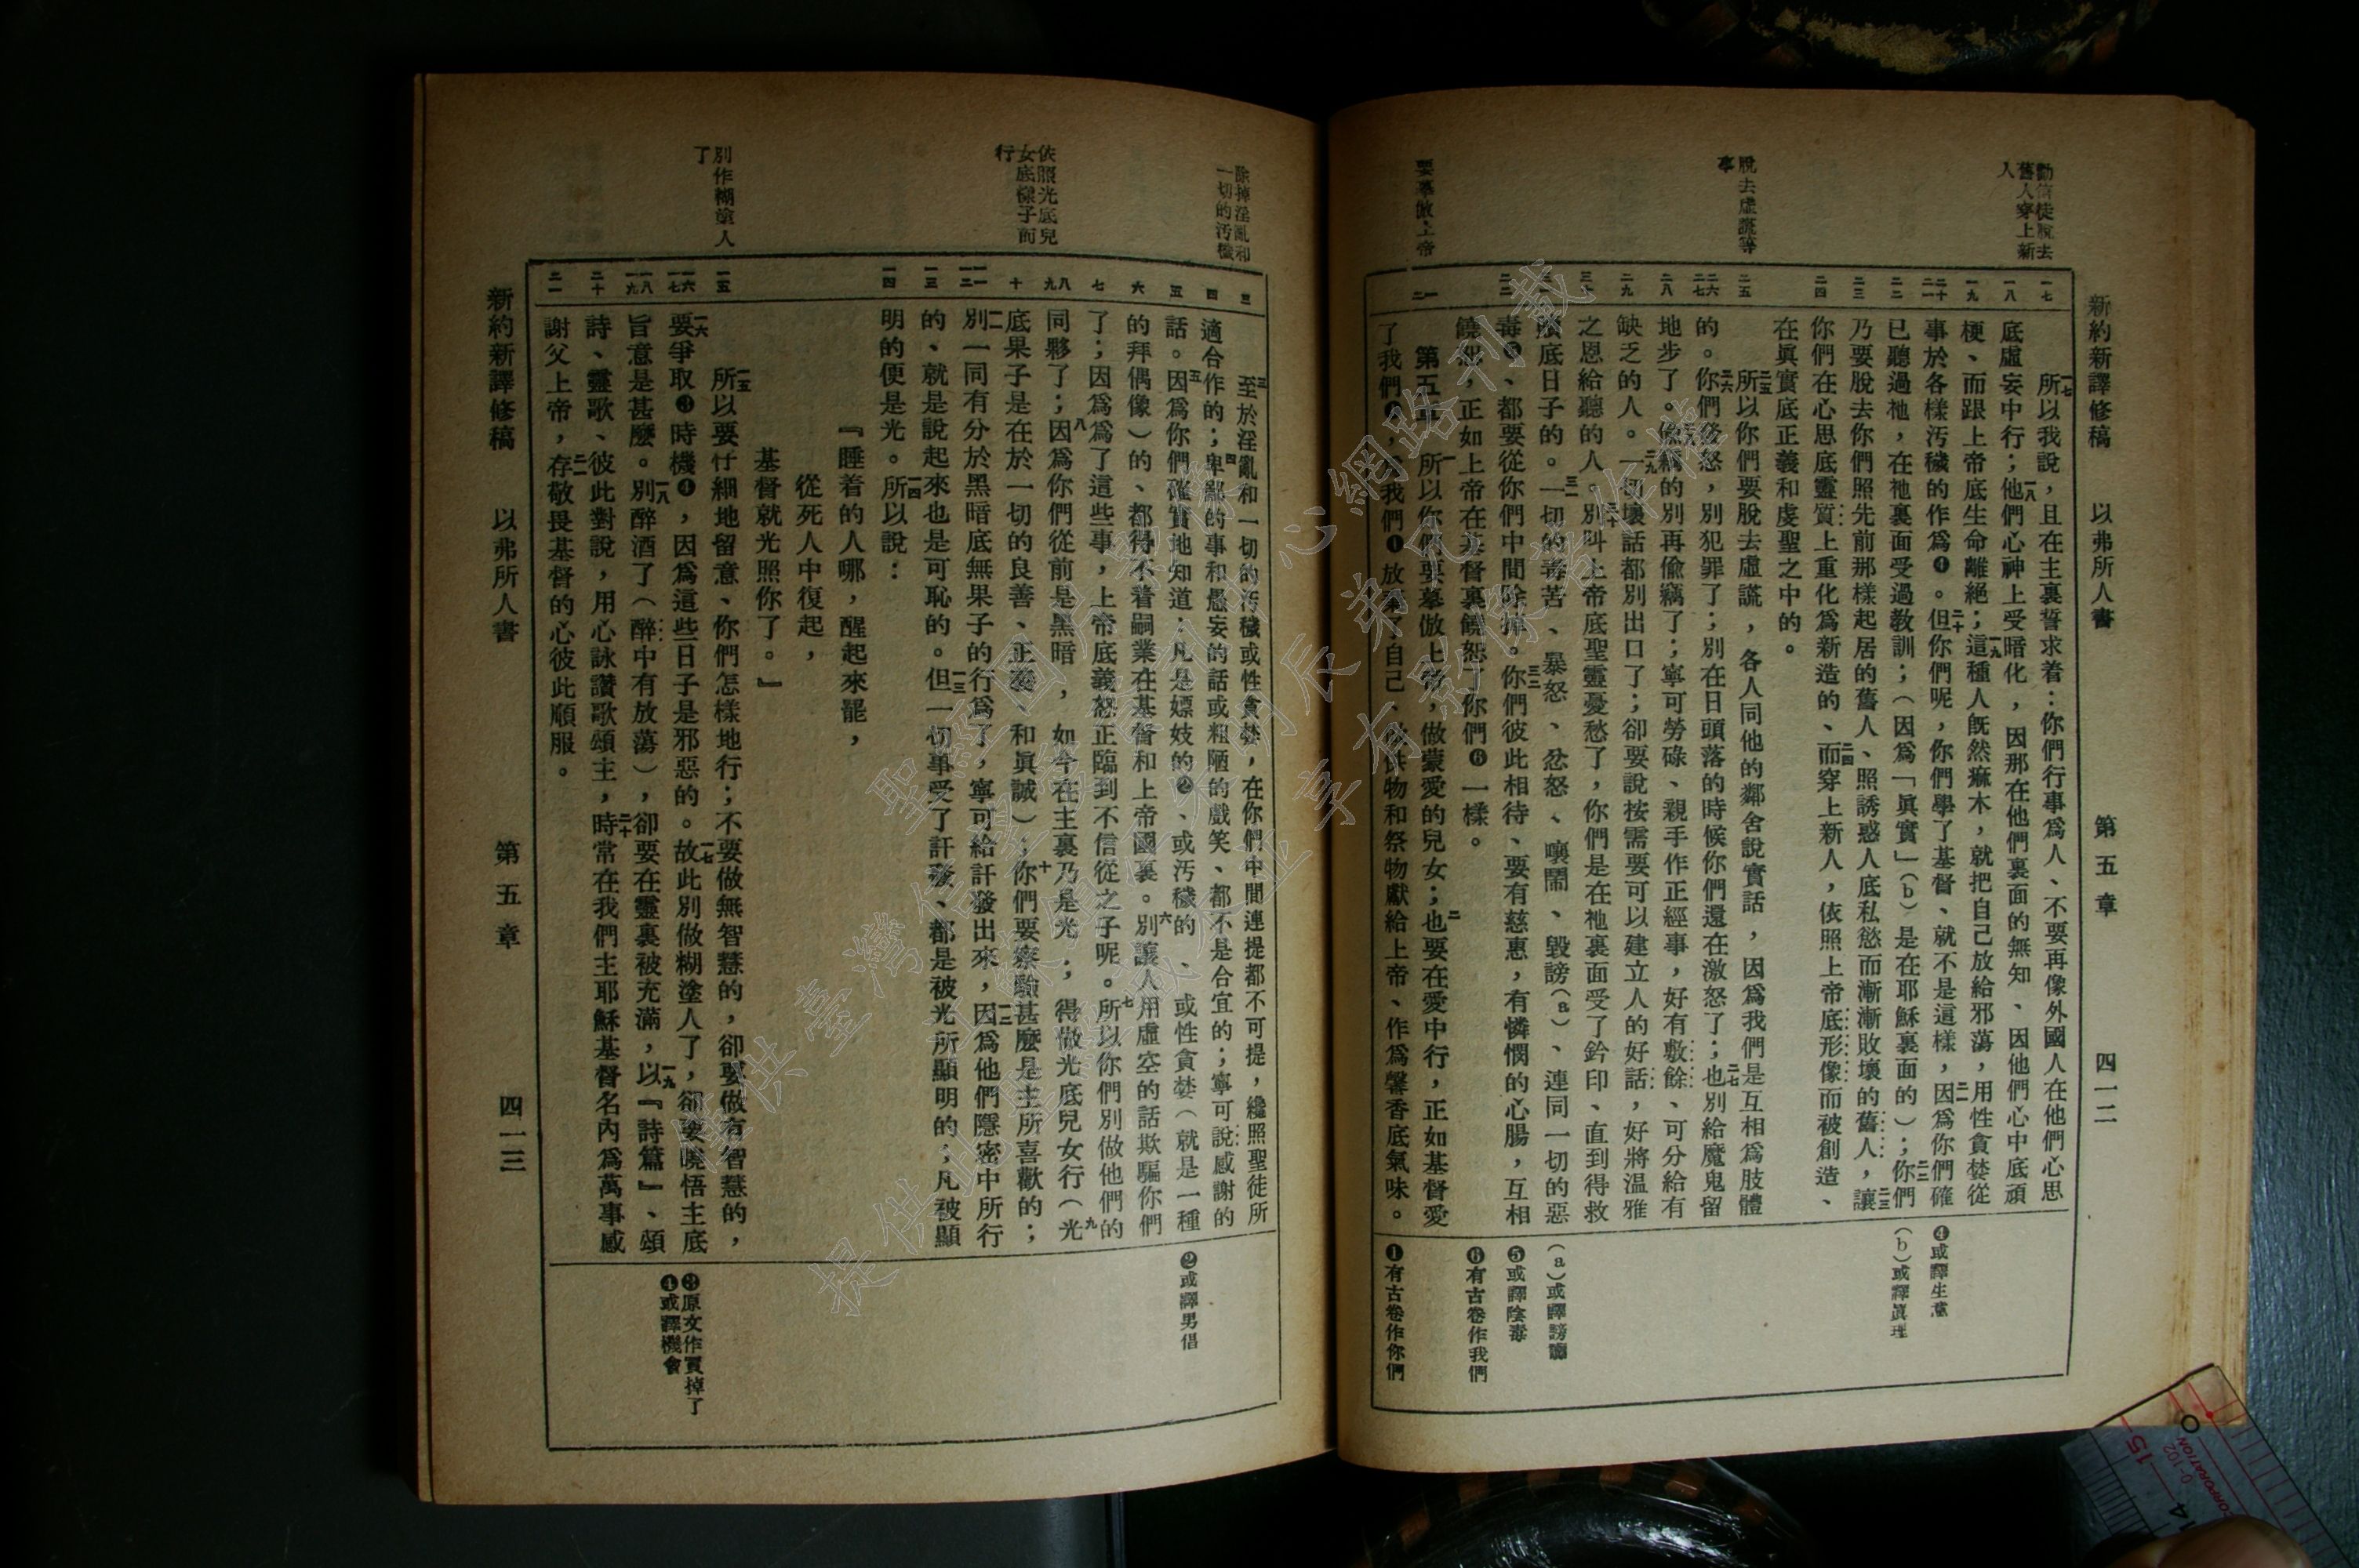 新約新譯修稿　以弗所人書　第五章　四一二
勸信徒脫去
舊人穿上新
人
脫去虛謊等
事
要摹倣上帝
一七
一八
一九
二十
二一
二二
二三
二四
二五
二六
二七
二八
二九
三十
三一
三二
一
二
一七所以我說，且在主裏誓求着：你們行事爲人、不要再像外國人在他們心思
底虛妄中行；一八他們心神上受暗化，因那在他們裏面的無知、因他們心中底頑
梗、而跟上帝底生命離絕；一九這種人旣然痲木，就把自己放給邪蕩，用性貪婪從
事於各樣汚穢的作爲❹。二十但你們呢，你們學了基督、就不是這樣，二一因爲你們確
已聽過祂，在祂裏面受過教訓；（因爲「眞實」（b）是在耶穌裏面的）；二二你們
乃要脫去你們照先前那樣起居的舊人、照誘惑人底私慾而漸漸敗壞的舊人，二三讓
你們在心思底靈質上重化爲新造的、二四而穿上新人，依照上帝底形像而被創造、
在眞實底正義和虔聖之中的。
二五所以你們要脫去虛謊，各人同他的鄰舍說實話，因爲我們是互相爲肢體
的。二六你們發怒，別犯罪了；別在日頭落的時候你們還在激怒了；二七也別給魔鬼留
地步了。二八偷竊的別再偷竊了；寧可勞碌、親手作正經事，好有敷餘、可分給有
缺乏的人。二九一切壞話都別出口了；卻要說按需要可以建立人的好話，好將温雅
之恩給聽的人。三十別叫上帝底聖靈憂愁了，你們是在祂裏面受了鈐印、直到得救
贖底日子的。三一一切的毒苦、暴怒、忿怒、嚷鬧、毀謗（a）、連同一切的惡
毒❺、都要從你們中間除掉。三二你們彼此相待、要有慈惠，有憐憫的心腸，互相
饒恕，正如上帝在基督裏饒恕了你們❻一樣。
第五章　一所以你們要摹倣上帝，做蒙愛的兒女；二也要在愛中行，正如基督愛
了我們❶，爲我們❶放棄了自己、做供物和祭物獻給上帝、作爲馨香底氣味。
❹或譯生意
（b）或譯眞理
（a）或譯謗讟
❺或譯陰毒
❻有古卷作我們
❶有古卷作你們
除掉淫亂和
一切的汚穢
依照光底兒
女底樣子而
行
別作糊塗人
了
三
四
五
六
七
八
九
十
一一
一二
一三
一四
一五
一六
一七
一八
一九
二十
二一
三至於淫亂和一切的汚穢或性貪婪，在你們中間連提都不可提，纔照聖徒所
適合作的；四卑鄙的事和愚妄的話或粗陋的戲笑、都不是合宜的；寧可說感謝的
話。五因爲你們確實地知道：凡是嫖妓的❷、或汚穢的、或性貪婪（就是一種
的拜偶像）的、都得不着嗣業在基督和上帝國裏。六別讓人用虛空的話欺騙你們
了；因爲爲了這些事，上帝底義怒正臨到不信從之子呢。七所以你們別做他們的
同夥了；八因爲你們從前是黑暗，如今在主裏乃是光；得做光底兒女行（九光
底果子是在於一切的良善、正義、和眞誠）；十你們要察驗甚麼是主所喜歡的；
一一別一同有分於黑暗底無果子的行爲了，寧可給訐發出來，一二因爲他們隱密中所行
的、就是說起來也是可恥的。一三但一切事受了訐發、都是被光所顯明的；凡被顯
明的便是光。一四所以說：
『睡着的人哪，醒起來罷，
從死人中復起，
基督就光照你了。』
一五所以要仔細地留意、你們怎樣地行；不要做無智慧的，卻要做有智慧的，
一六要爭取❸時機❹，因爲這些日子是邪惡的。一七故此別做糊塗人了，卻要曉悟主底
旨意是甚麼。一八別醉酒了（醉中有放蕩），卻要在靈裏被充滿，一九以『詩篇』、頌
詩、靈歌、彼此對說，用心詠讚歌頌主，二十時常在我們主耶穌基督名內爲萬事感
謝父上帝，二一存敬畏基督的心彼此順服。
❷或譯男倡
❸原文作買掉了
❹或譯機會
新約新譯修稿　以弗所人書　第五章　四一三